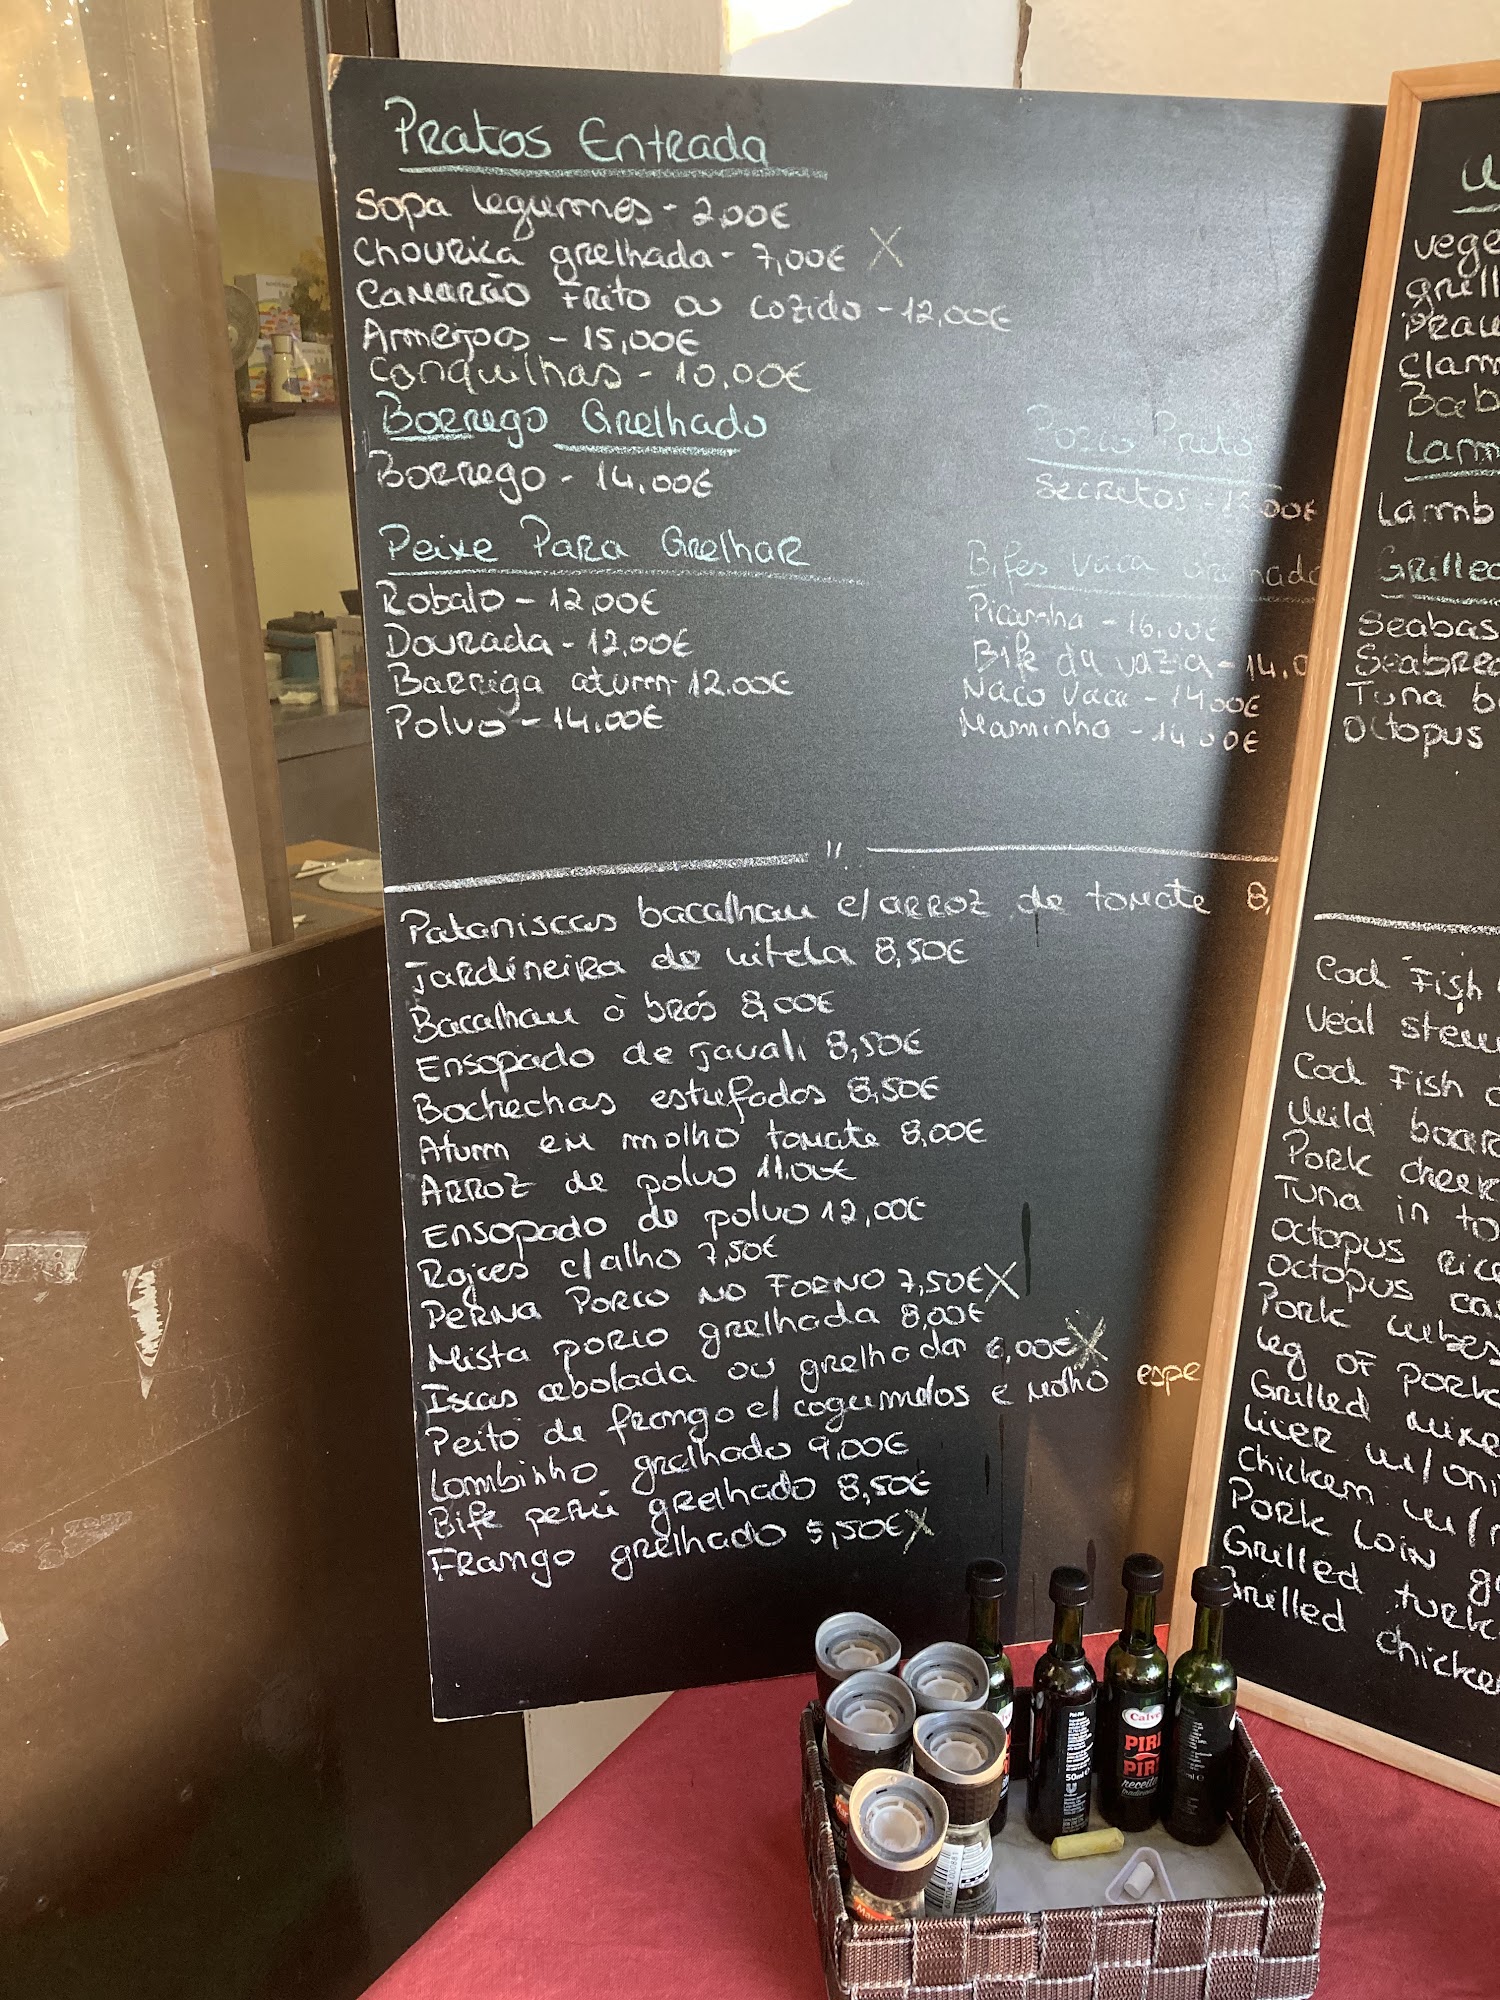 Pratos Entrada
Sopa legumes - 2,00€
Chouriça grelhada - 7,00€ X
Camarão Frito ou cozido - 12,00€
Ameijoas - 15,00€
Conquilhas - 10,00€
Borrego Grelhado
Borrego - 14,00€
Peixe Para Grelhar
Robalo - 12,00€
Dourada - 12,00€
Barriga atum - 12.00€
Polvo - 14,00€
Porco Preto
Secretos - 12,00€
Bifes Vaca Grelhado
Picanha - 16,00€
Bife da vazia - 14,0
Naco Vaca - 14,00€
Maminha - 14,00€
Pataniscas bacalhau c/ arroz de tomate 8,
Jardineira de vitela 8,50€
Bacalhau à brás 8,00€
Ensopado de javali 8,50€
Bochechas estufados 8,50€
Atum em molho tomate 8,00€
Arroz de polvo 11,00€
Ensopado de polvo 12,00€
Rojões c/alho 7,50€
Perna Porco no Forno 7,50€ X
Mista porco grelhada 8,00€
Iscas cebolada ou grelhada 6,00€ X
Peito de frango c/ cogumelos e molho espe
Lombinho grelhado 9,00€
Bife perú grelhado 8,50€
Frango grelhado 5,50€ X
vege
grill
Praw
Clam
Bab
Lam
Lamb
Grilled
Seabas
Seabrea
Tuna b
Octopus
Cod Fish
Veal stew
Cod Fish
Wild boar
Pork cheek
Tuna in to
Octopus rice
Octopus ca
Pork cubes
Leg of Pork
Grilled mixe
Liver w/oni
Chicken w/
Pork loin g
Grilled turk
Grilled chicke
Calvé
PIRI
PIRI
receita
tradicional
50ml e